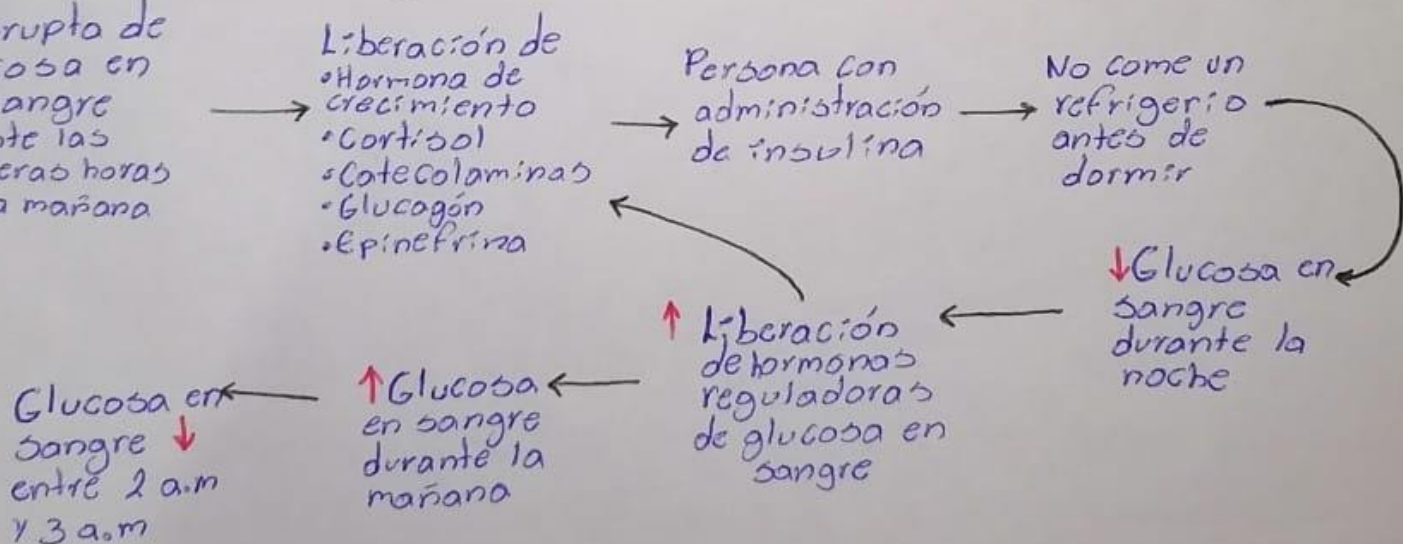 rupto de
osa en
angre
te las
eras horas
a mañana
Liberación de
•Hormona de
crecimiento
•Cortisol
•Catecolaminas
•Glucagón
•Epinefrina
Persona con
administración
de insulina
No come un
refrigerio
antes de
dormir
↓Glucosa en
sangre
durante la
noche
↑ Liberación
de hormonas
reguladoras
de glucosa en
sangre
↑Glucosa
en sangre
durante la
mañana
Glucosa en
sangre ↓
entre 2 a.m
y 3 a.m